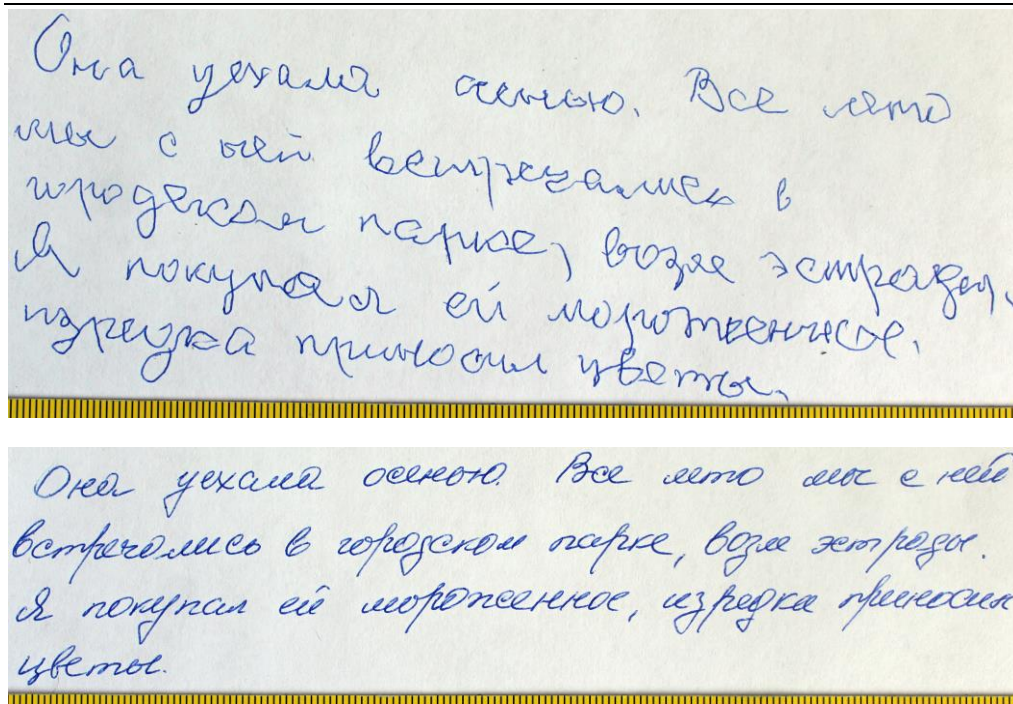 Она уехала осенью. Все лето
мы с ней встречались в
городском парке, возле эстрады.
Я покупал ей мороженное,
изредка приносил цветы.
Она уехала осенью. Все лето мы с ней
встречолись в городском парке, возле эстроды.
Я покупал ей мороженное, изредка приносил
цветы.